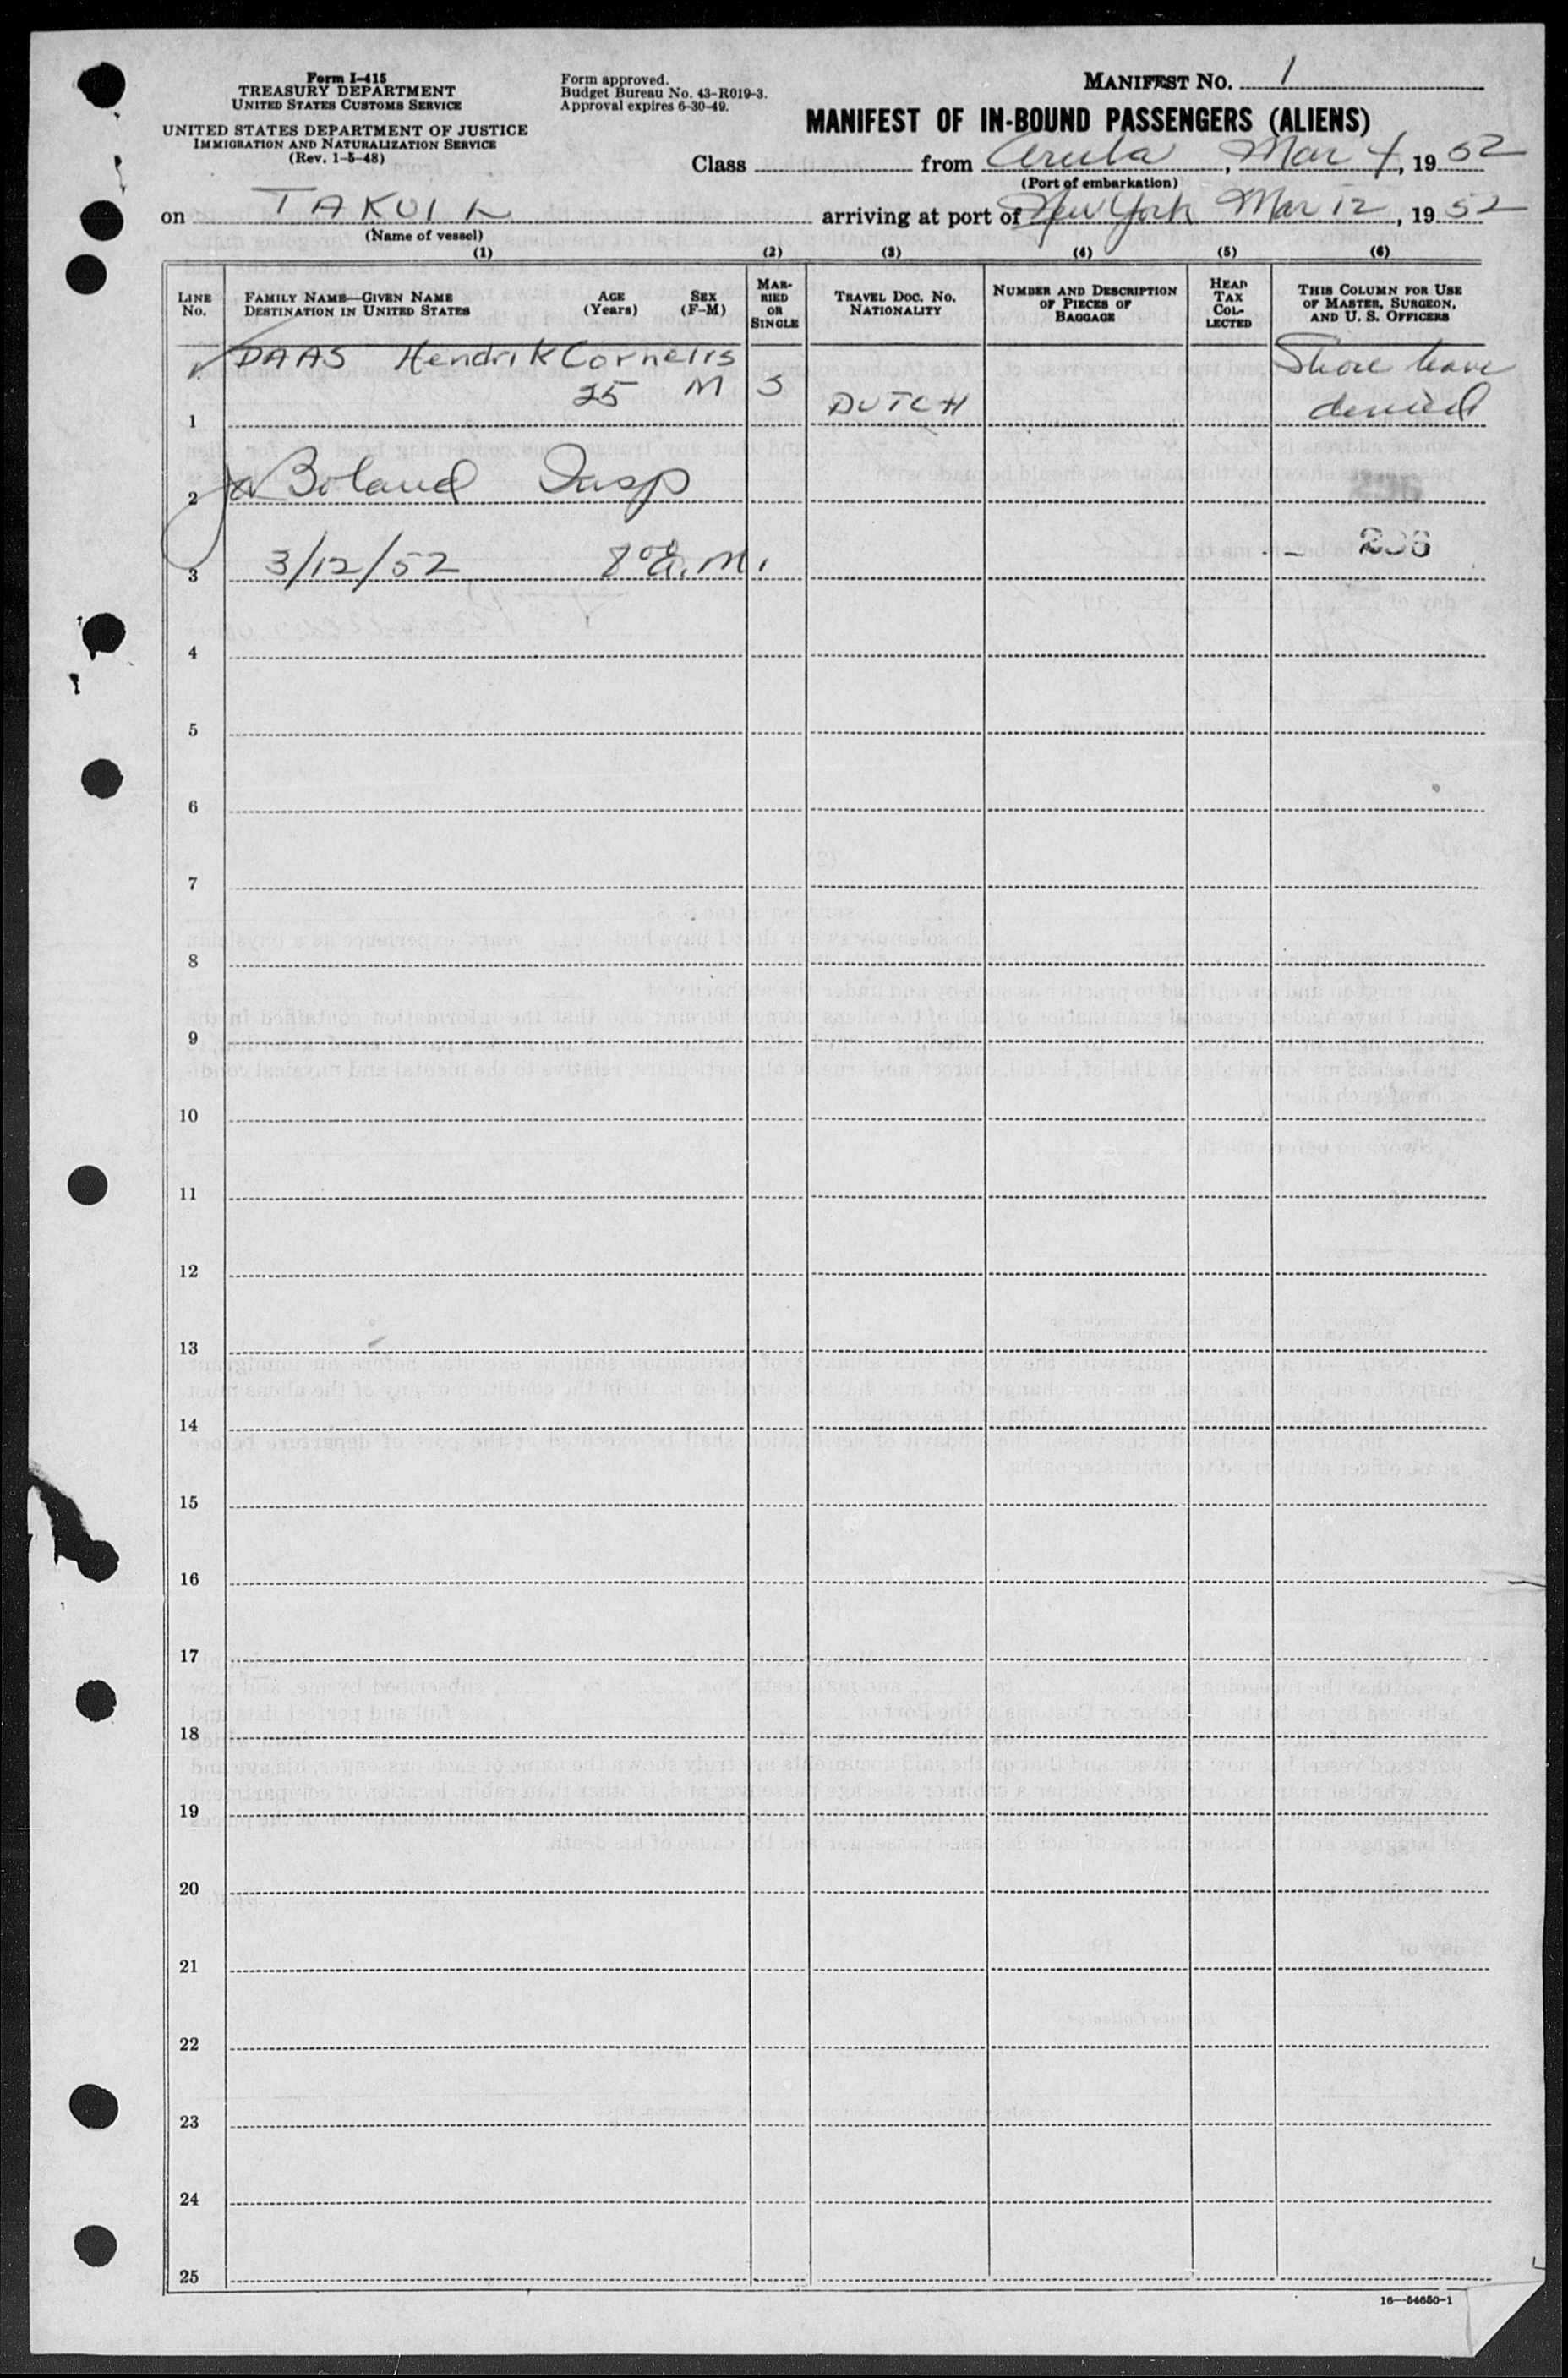 Form I-415
TREASURY DEPARTMENT
UNITED STATES CUSTOMS SERVICE
UNITED STATES DEPARTMENT OF JUSTICE
IMMIGRATION AND NATURALIZATION SERVICE
(Rev. 1-5-48)
Form approved.
Budget Bureau No. 43-R019-3.
Approval expires 6-30-49.
MANIFEST NO. 1
MANIFEST OF IN-BOUND PASSENGERS (ALIENS)
Class from Aruba, Mar 4, 1952
(Port of embarkation)
on arriving at port of New York Mar 12, 1952
(Name of vessel)
(1) (2) (3) (4) (5) (6)
LINE No.
FAMILY NAME—GIVEN NAME
DESTINATION IN UNITED STATES
AGE (Years)
SEX (F-M)
MARRIED OR SINGLE
TRAVEL DOC. NO.
NATIONALITY
NUMBER AND DESCRIPTION OF PIECES OF BAGGAGE
HEAD TAX COLLECTED
THIS COLUMN FOR USE OF MASTER, SURGEON, AND U. S. OFFICERS
DAAS Hendrik Cornelis Shore leave
25 M S
1 DUTCH denied
2 Boland Insp
3 3/12/52 8 00 a.m.
4
5
6
7
8
9
10
11
12
13
14
15
16
17
18
19
20
21
22
23
24
25
16—54650-1